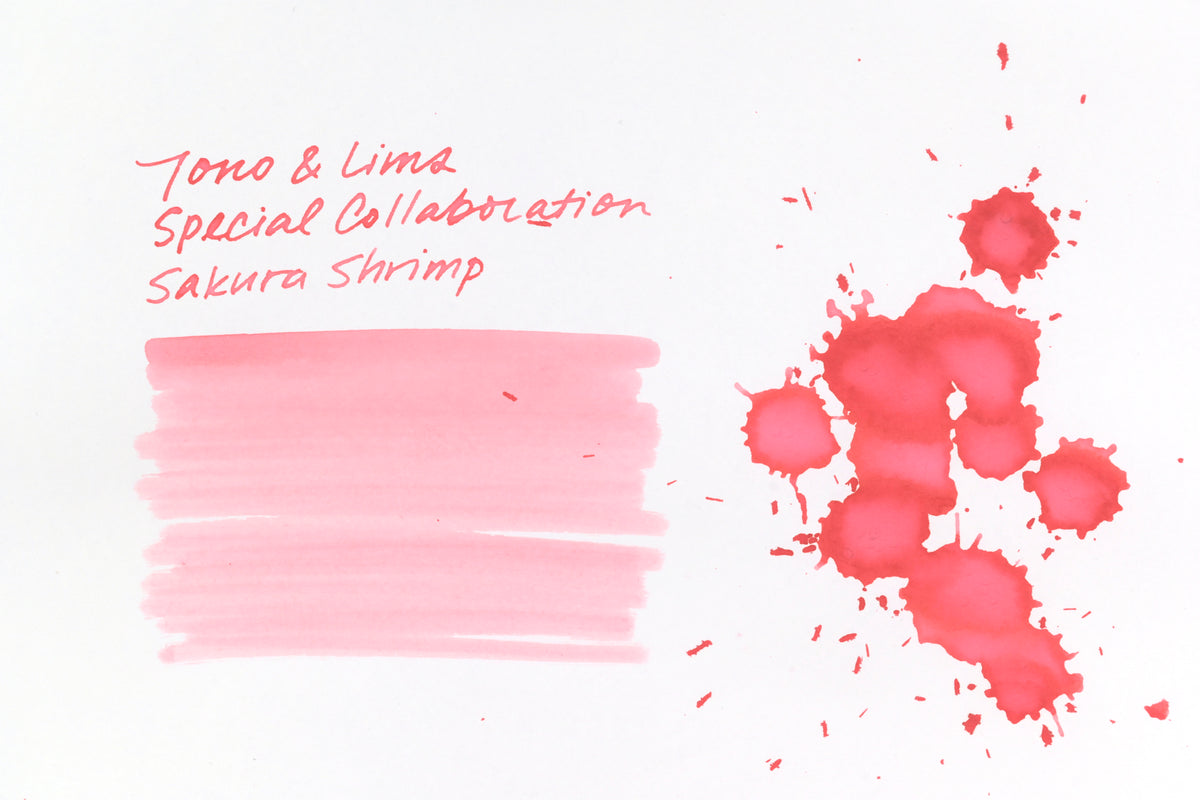 Tono & Lims
Special Collaboration
Sakura Shrimp